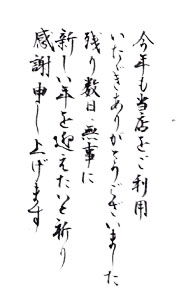 今年も当店をご利用
いただきありがとうございました
残り数日、無事に
新しい年を迎えたいと祈り
感謝申し上げます